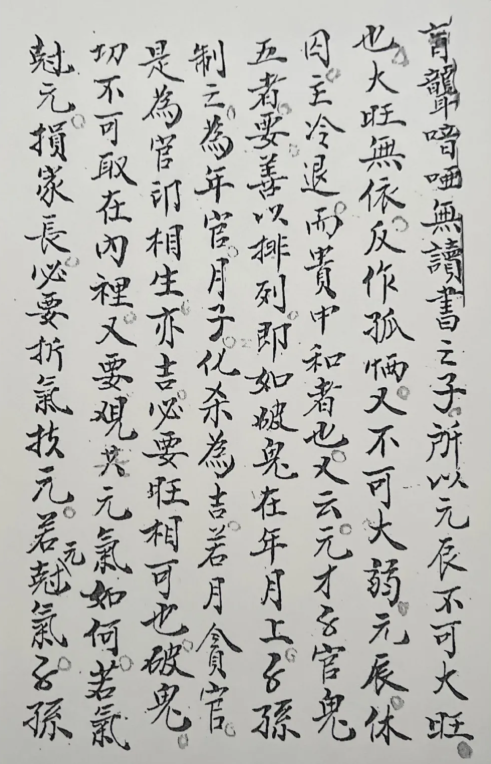 盲聾喑啞無讀書之子。所以元辰不可大旺
也。大旺無依反作孤恓。又不可大弱。元辰休
囚。主冷退。而貴中和者也。又云。元才子官鬼
五者。要善以排列。即如破鬼在年月上。子孫
制之。為年官。月子。化杀為吉。若月貪官。
是為官印相生亦吉。必要旺相可也。破鬼。
切不可取在內裡。又要观其元氣如何。若氣
尅元。損家長。必要折氣扶元。若元尅氣。子孫